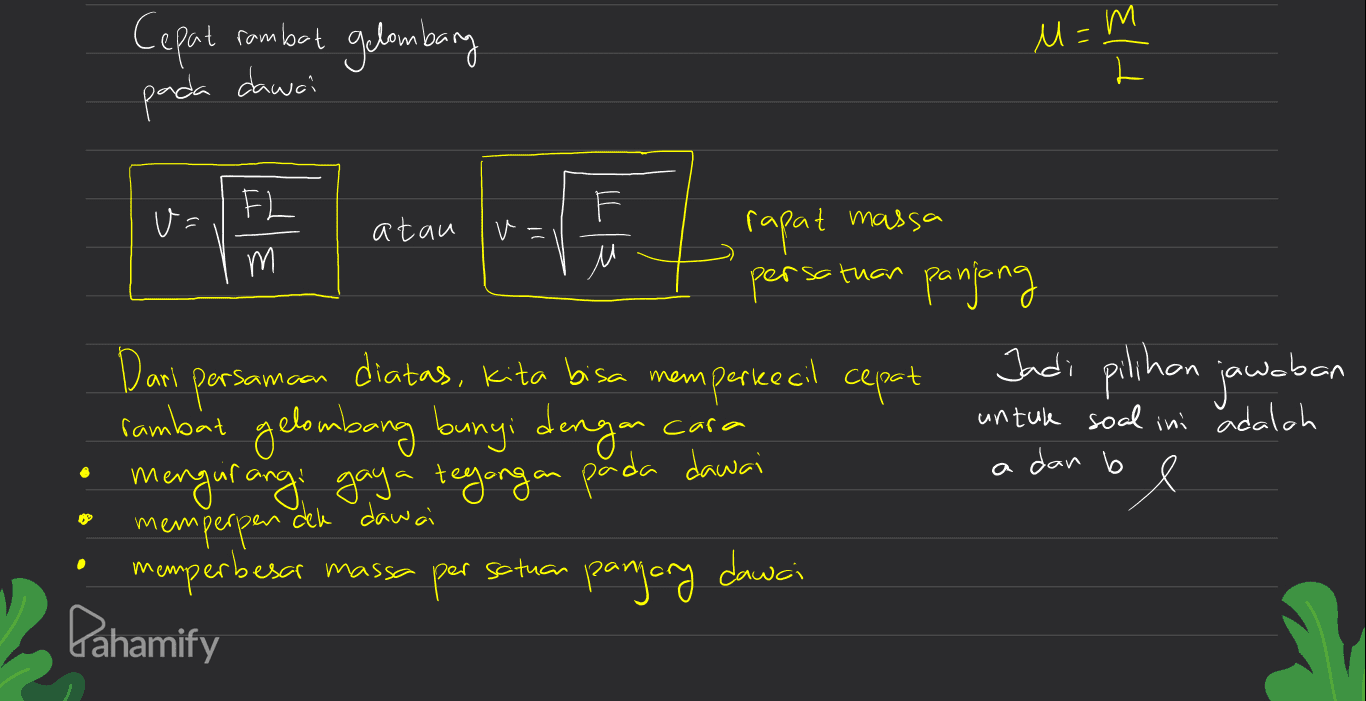 Cepat rambat gelombang
pada dawai
μ = m
L
v = √ FL
m
atau
v = √ F
μ
rapat massa
persatuan panjang
Dari persamaan diatas, kita bisa memperkecil cepat
rambat gelombang bunyi dengan cara
• mengurangi gaya tegangan pada dawai
• memperpendek dawai
• memperbesar massa per satuan panjang dawai
Jadi pilihan jawaban
untuk soal ini adalah
a dan b
Pahamify